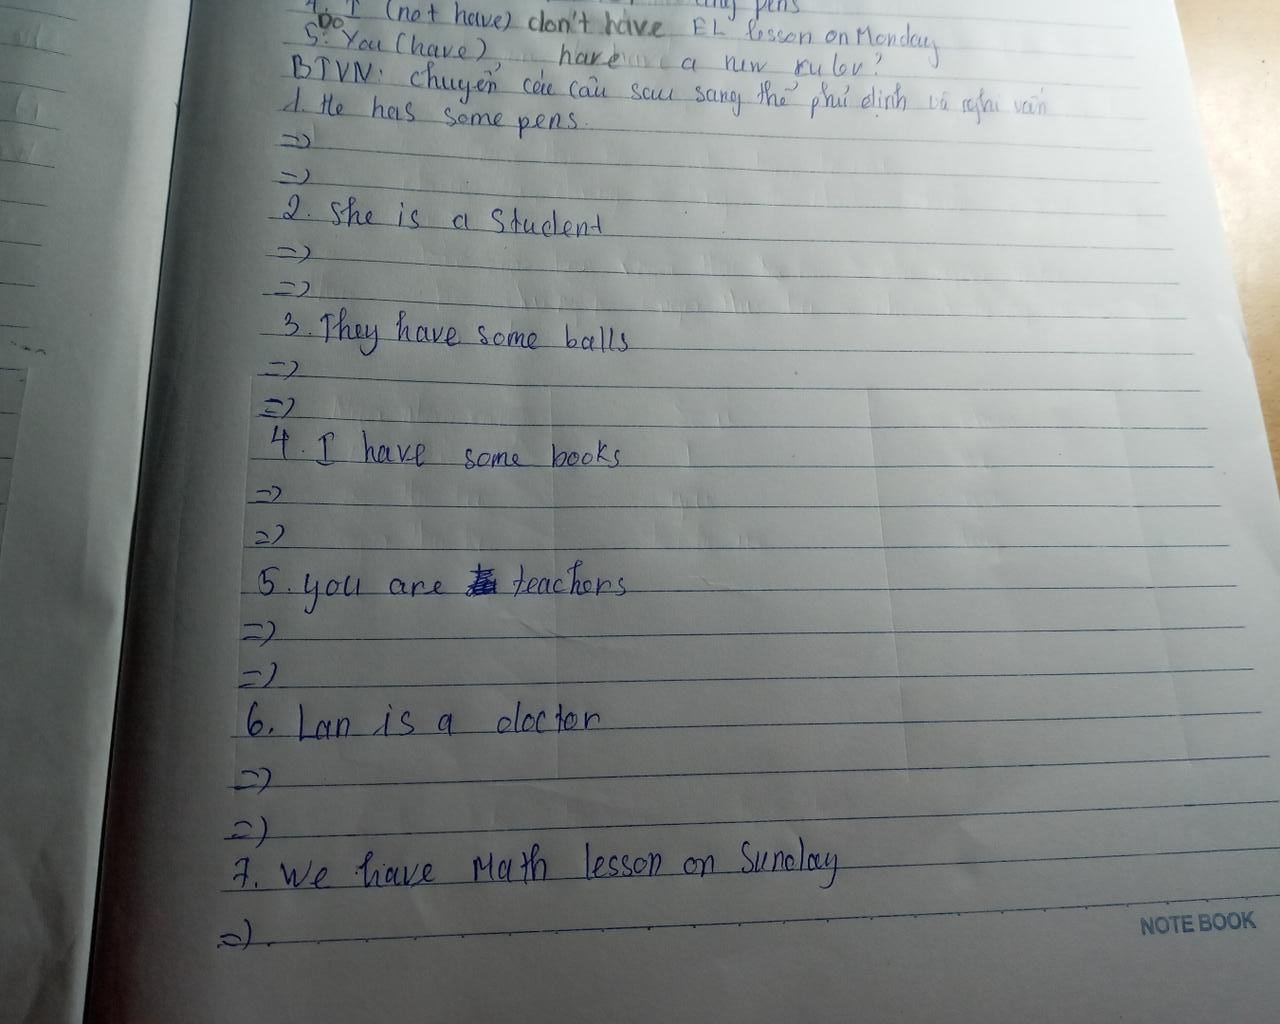 pens
4. I (not have) don't have EL lesson on Monday
Do
5. You (have) have a new ruler?
BTVN: chuyển các câu sau sang thể phủ định và nghi vấn
1. He has some pens.
=>
=>
2. She is a student
=>
=>
3. They have some balls
=>
=>
4. I have some books
=>
=>
5. you are teachers
=>
=>
6. Lan is a doctor
=>
=>
7. We have Math lesson on Sunday
=>
NOTE BOOK